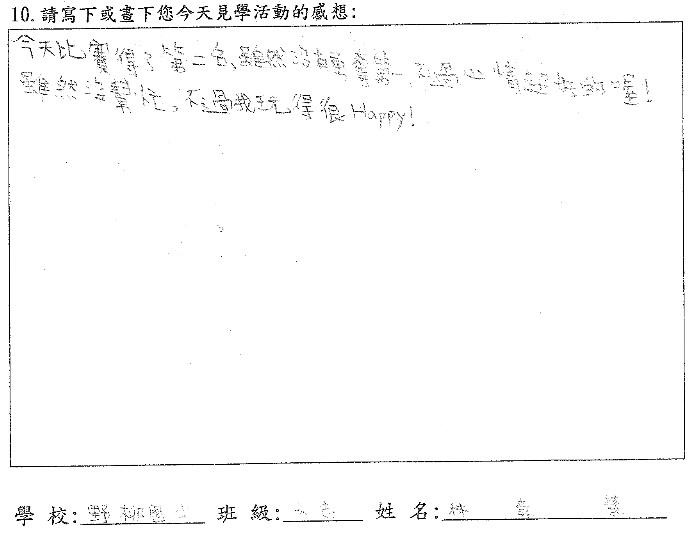 10. 請寫下或畫下您今天見學活動的感想:
今天比賽得了第二名,雖然沒有拿第一,不過心情超好的喔!
雖然沒,不過我玩得很Happy!
學校:野柳國小 班級: 姓名:林